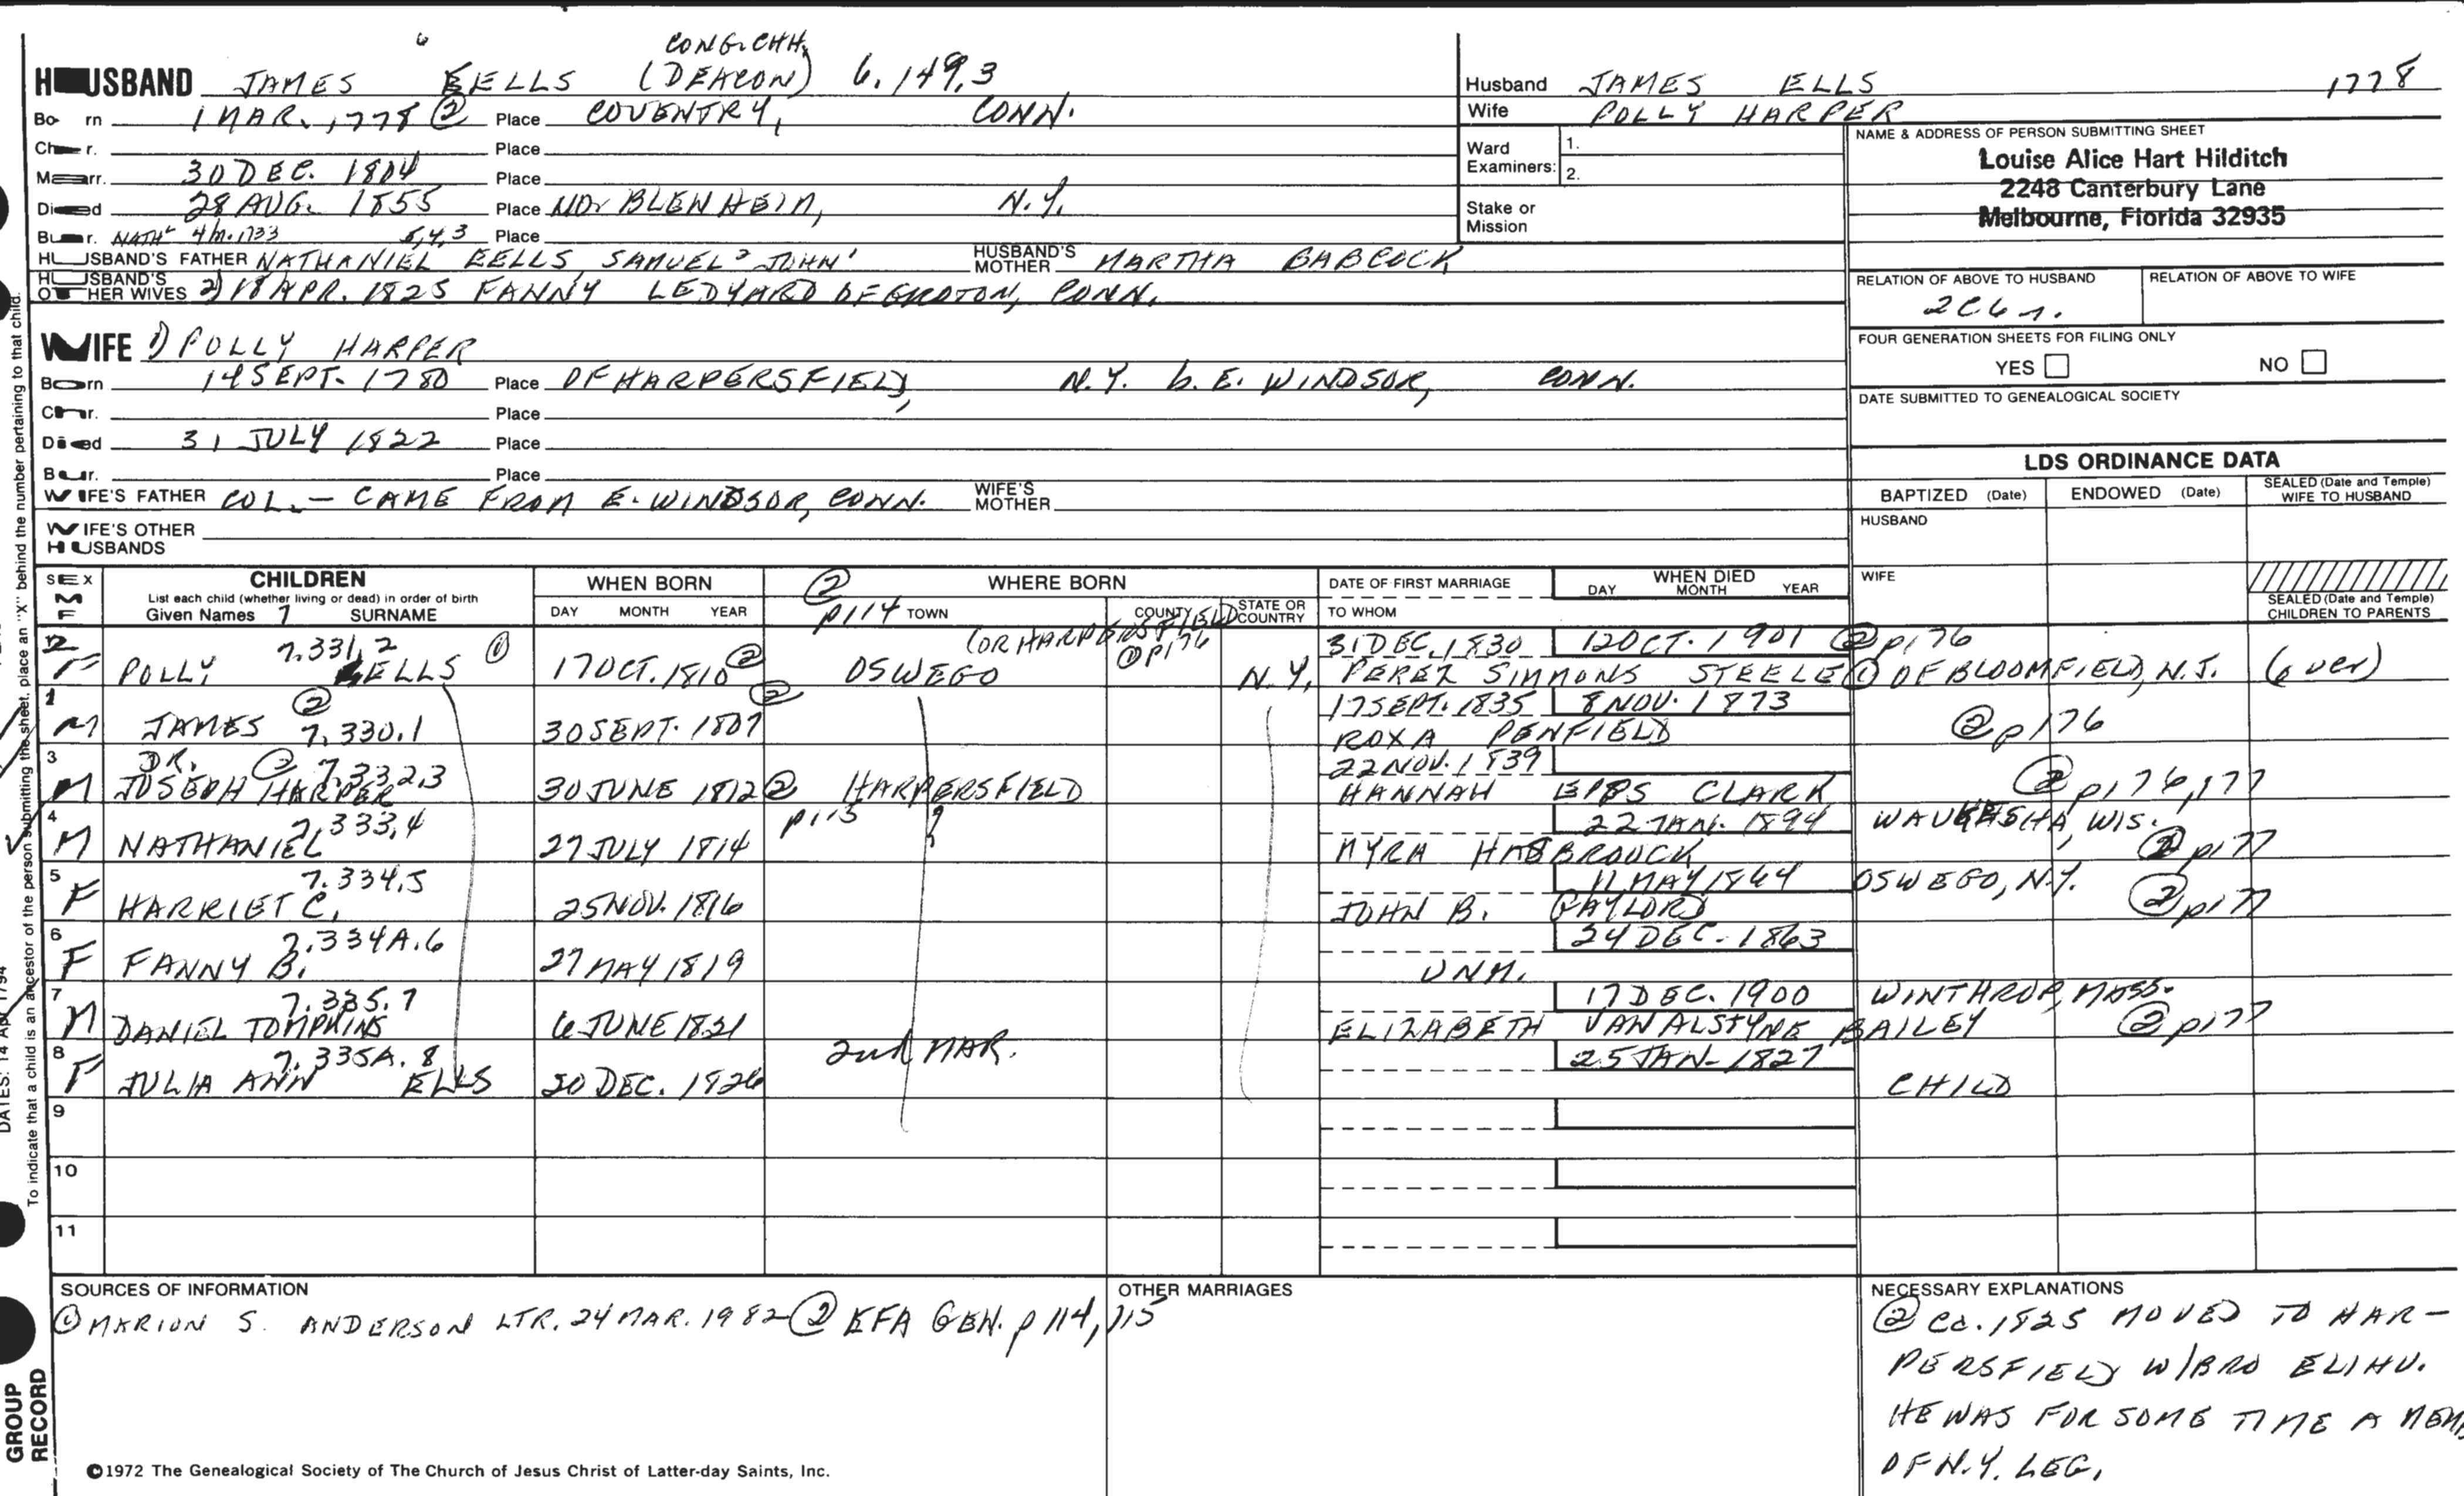 6 CONG. CHH.
HUSBAND JAMES EELLS (DEACON) 6.149,3
Born 1 MAR. 1778 ② Place COVENTRY, CONN.
Chr. Place
Marr. 30 DEC. 1804 Place
Died 28 AUG. 1855 Place NO. BLENHEIM, N.Y.
Bur. NATHL 4/m.1733 5,4,3 Place
HUSBAND'S FATHER NATHANIEL EELLS, SAMUEL² JOHN¹ HUSBAND'S MOTHER MARTHA BABCOCK
HUSBAND'S OTHER WIVES 2) 18 APR. 1825 FANNY LEDYARD OF GROTON, CONN.
WIFE 1) POLLY HARPER
Born 14 SEPT. 1780 Place OF HARPERSFIELD, N.Y. b. E. WINDSOR, CONN.
Chr. Place
Died 31 JULY 1822 Place
Bur. Place
WIFE'S FATHER COL. — CAME FROM E. WINDSOR, CONN. WIFE'S MOTHER
WIFE'S OTHER HUSBANDS
Husband JAMES ELLS 1778
Wife POLLY HARPER
Ward Examiners: 1.
2.
Stake or Mission
NAME & ADDRESS OF PERSON SUBMITTING SHEET
Louise Alice Hart Hilditch
2248 Canterbury Lane
Melbourne, Florida 32935
RELATION OF ABOVE TO HUSBAND RELATION OF ABOVE TO WIFE
2C6r.
FOUR GENERATION SHEETS FOR FILING ONLY
YES NO
DATE SUBMITTED TO GENEALOGICAL SOCIETY
LDS ORDINANCE DATA
BAPTIZED (Date) ENDOWED (Date) SEALED (Date and Temple) WIFE TO HUSBAND
HUSBAND
WIFE
SEALED (Date and Temple) CHILDREN TO PARENTS
SEX M F CHILDREN WHEN BORN ② WHERE BORN DATE OF FIRST MARRIAGE WHEN DIED
List each child (whether living or dead) in order of birth
Given Names 7 SURNAME DAY MONTH YEAR p114 TOWN COUNTY STATE OR COUNTRY TO WHOM DAY MONTH YEAR
2 7.331,2 ① (OR HARPERSFIELD ② p176 31 DEC. 1830 12 OCT. 1901 ② p176
F POLLY EELLS 17 OCT. 1810 ② OSWEGO N.Y. PEREZ SIMMONS STEELE ① OF BLOOMFIELD, N.J. (over)
1 ② ② 17 SEPT. 1835 8 NOV. 1873
M JAMES 7.330.1 30 SEPT. 1807 ROXA PENFIELD ② p176
3 DR. ② 7.332,3 22 NOV. 1839
M JOSEPH HARPER 30 JUNE 1812 ② HARPERSFIELD HANNAH EPPS CLARK ② p176,177
4 7.333,4 p115 ? 22 JAN. 1894 WAUKESHA, WIS.
M NATHANIEL 27 JULY 1814 MYRA HASBROUCK ② p177
5 7.334,5 11 MAY 1864 OSWEGO, N.Y.
F HARRIET C. 25 NOV. 1816 JOHN B. GAYLORD ② p177
6 7.334A.6 24 DEC. 1863
F FANNY B. 27 MAY 1819 UNM.
7 7.335.7 17 DEC. 1900 WINTHROP, MASS.
M DANIEL TOMPKINS 6 JUNE 1821 ELIZABETH VAN ALSTYNE BAILEY ② p177
8 7.335A.8 2nd MAR. 25 JAN. 1827
F JULIA ANN ELLS 20 DEC. 1826 CHILD
9
10
11
SOURCES OF INFORMATION
① MARION S. ANDERSON LTR. 24 MAR. 1982 ② EFA GEN. p 114, 115
OTHER MARRIAGES
NECESSARY EXPLANATIONS
② Ca. 1825 MOVED TO HAR-
PERSFIELD W/BRO ELIHU.
HE WAS FOR SOME TIME A MEM
OF N.Y. LEG.
©1972 The Genealogical Society of The Church of Jesus Christ of Latter-day Saints, Inc.
To indicate that a child is an ancestor of the person submitting the sheet, place an "X" behind the number pertaining to that child.
DATES: 14 Apr 1794
GROUP
RECORD